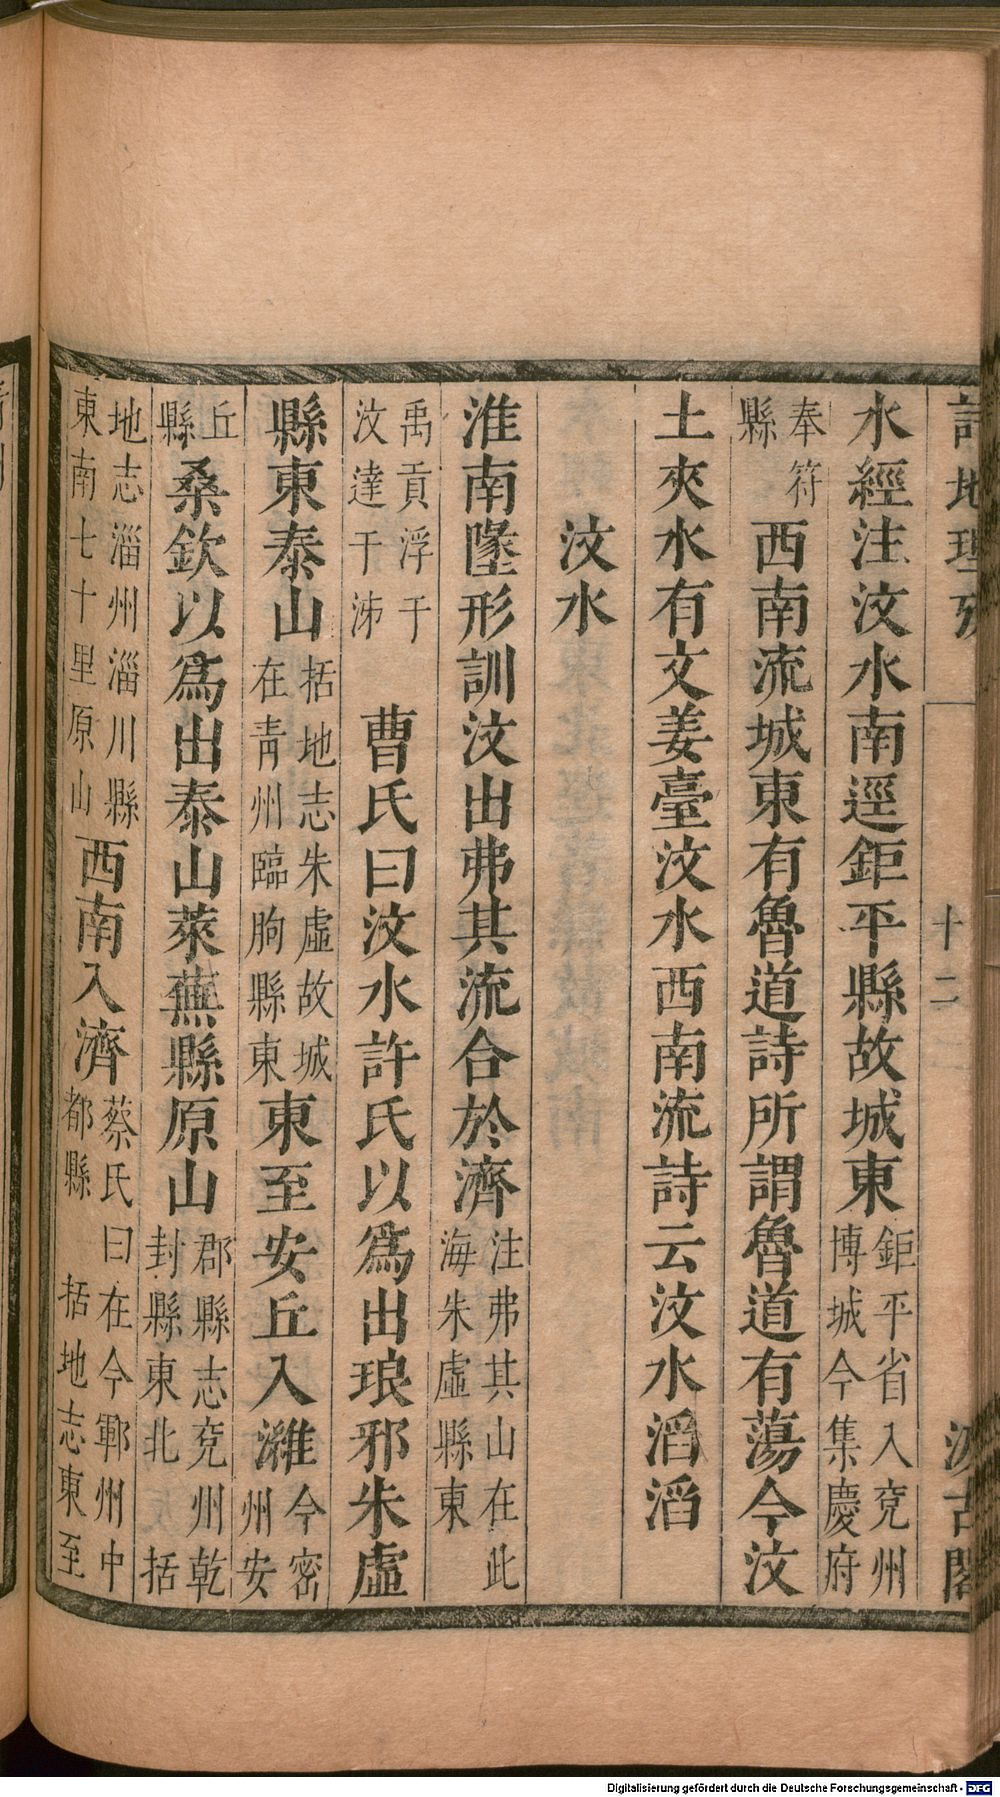 詩地理攷
十二
汲古閣
水經注汶水南逕鉅平縣故城東鉅平省入兖州博城今集慶府
奉符縣西南流城東有魯道詩所謂魯道有蕩今汶
土夾水有文姜臺汶水西南流詩云汶水滔滔
汶水
淮南墬形訓汶出弗其流合於濟注弗其山在此海朱虛縣東
禹貢浮于汶達于泲 曹氏曰汶水許氏以爲出琅邪朱虛
縣東泰山括地志朱虛故城在青州臨朐縣東東至安丘入濰今密州安
丘縣桑欽以爲出泰山萊蕪縣原山郡縣志兖州乾封縣東北括
地志淄州淄川縣東南七十里原山西南入濟蔡氏曰在今鄆州中都縣 括地志東至
Digitalisierung gefördert durch die Deutsche Forschungsgemeinschaft - DFG